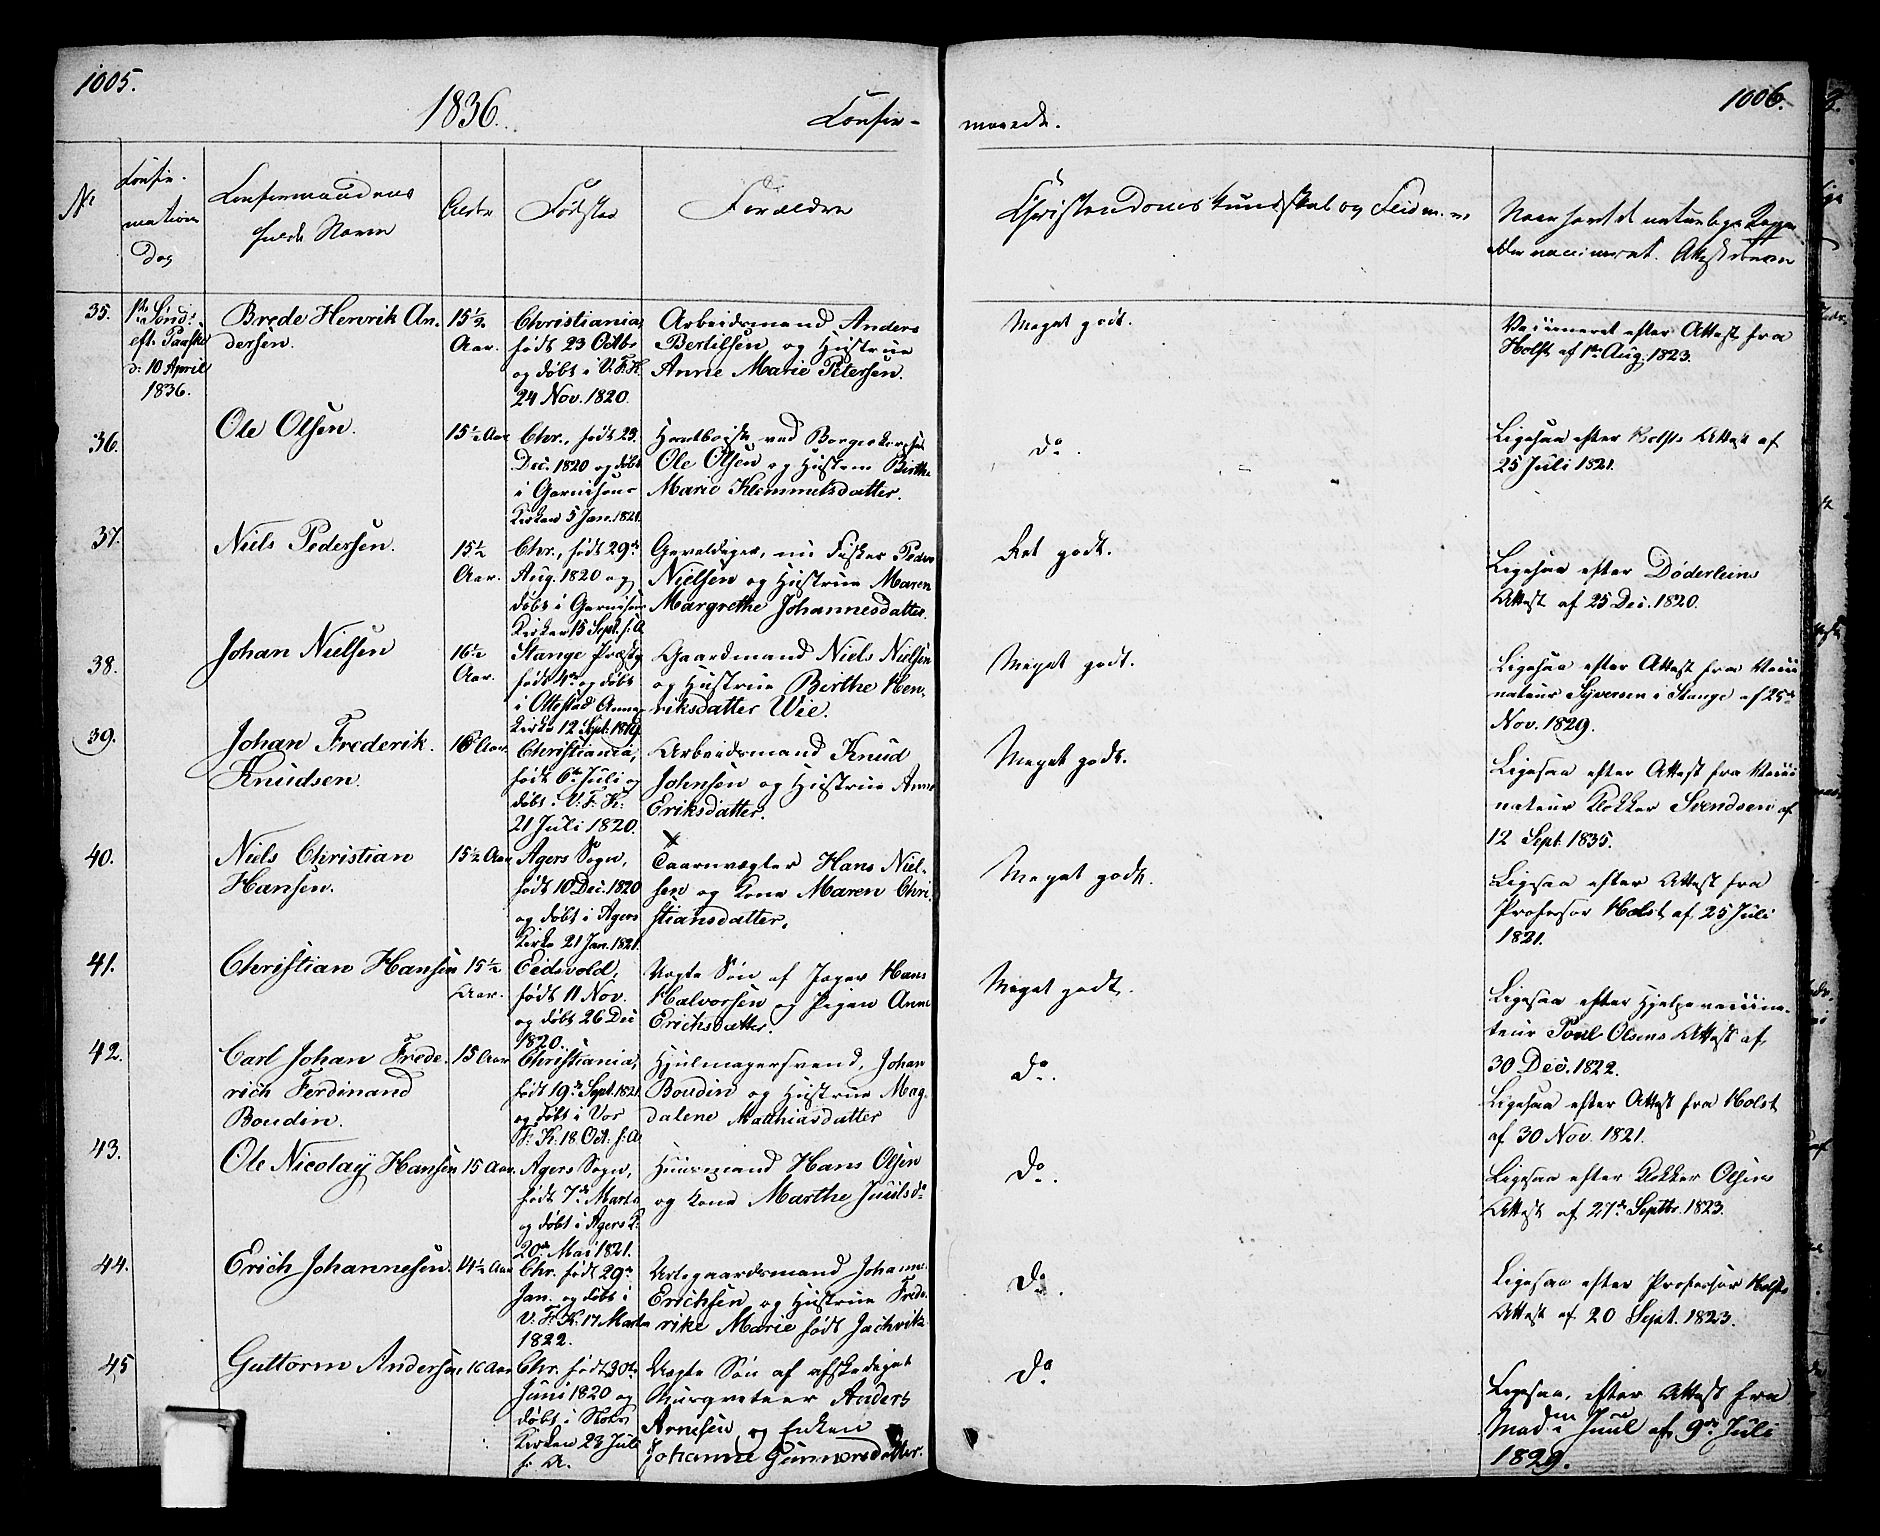 1005.
1836.
Confir-
Nr
Confir-
mations
Dag
Confirmandens
fulde Navn
Alder
Fødsted
Forældre
35.
1ste Sønd:
eft. Paaske
d: 10 April
1836.
Brede Henrik An-
dersen.
15 1/2
Aar.
Christiania,
født 23 Octbr
og døbt i V: F: K.
24 Nov. 1820.
Arbeidsmand Anders
Bertilsen og Hustrue
Anne Marie Petersen.
36.
Ole Olsen.
15 1/2 Aar
Chr., født 23.
Dec. 1820 og døbt
i Garnisons
Kirken 5 Jan. 1821.
Hautboist ved Borgerkorpset
Ole Olsen og Hustrue Birthe
Marie Klemmetsdatter.
37.
Niels Pedersen.
15 1/2
Aar.
Chr., født 29de
Aug. 1820 og
døbt i Garnison
Kirken 15 Sept. s: A
Gevaldiger, nu Fisker Peder
Nielsen og Hustrue Maren
Margrethe Johannesdatter.
38.
Johan Nielsen
16 1/2
Aar.
Stange Præstg
født 4de og døbt
i Ottestad Annex
kirke 12 Sept. 1819.
Gaardmand Niels Nielsen
og Hustrue Berthe Hen-
riksdatter Wie.
39.
Johan Frederik
Knudsen.
16 Aar.
Christiania,
født 6te Juli og
døbt i V: F: K:
21 Juli 1820.
Arbeidsmand Knud
Johnsen og Hustrue Anne
Eriksdatter.
40.
Niels Christian
Hansen.
15 1/2 Aar
Agers Sogn,
født 10 Dec. 1820
og døbt i Agers
Kirke 21 Jan. 1821.
Taarnvægter Hans Niel-
sen og Kone Maren Chri-
stiansdatter.
41.
Christian Hansen
15 1/2
Aar.
Eidsvold,
født 11 Nov.
og døbt 26 Dec
1820.
Uægte Søn af Jæger Hans
Halvorsen og Pigen Anne
Erichsdatter.
42.
Carl Johan Frede-
rich Ferdinand
Boudin.
15 Aar
Christiania,
født 19de Sept. 1821.
og døbt i Vor
F: K: 18 Oct. s: A
Hjulmagersvend, Johan
Boudin og Hustrue Mag-
dalene Matthiasdatter
43.
Ole Nicolaÿ Hansen
15 Aar.
Agers Sogn,
født 7de Marts
og døbt i Agers K.
20de Mai 1821.
Huusmand Hans Olsen
og Kone Marthe Juulsdr
44.
Erich Johannesen.
14 1/2 Aar
Chr. født 29de
Jan. og døbt i
V: F: K: 17 Marts
1822.
Urtegaardsmand Johann.
Erichsen og Hustrue Frede-
rike Marie født Jachvik
45
Guttorm Andersen
16 Aar
Chr. født 30te
Juni 1820 og
døbt i
Kirken 23 Juli
s: A.
Uægte Søn af afskediget
Anders
Arnesen og Enken
Johanne Gunnersdatter.
1006.
merede.
Christendomskundskab og Flid m. m.
Naar havt de naturlige Kopper
eller vaccineret. Attest derom
Meget godt.
Vaccineret efter Attest fra
Holst af 1ste Aug. 1823.
do.
Ligesaa efter Holsts Attest af
25 Juli 1821.
Ret godt.
Ligesaa efter Döderleins
Attest af 25 Dec. 1820.
Meget godt.
Ligesaa efter Attest fra Vacci
nateur Syversen i Stange af 25de
Nov. 1829.
Meget godt.
Ligesaa efter Attest fra Vacci
nateur Klokker Svendsen af
12 Sept. 1835.
Meget godt.
Ligesaa efter Attest fra
Professor Holst af 25 Juli
1821.
Meget godt.
Ligesaa efter Hjelpevaccina-
teur Poul Olsens Attest af
30 Dec. 1822.
do.
Ligesaa efter Attest fra Holst
af 30 Nov. 1821.
Do.
Ligesaa efter Klokker Olsens
Attest af 27de Septbr. 1823.
Do.
Ligesaa efter Professor Holsts
Attest af 20 Sept. 1823.
Do
Ligesaa, efter Attest fra
Madm Juul af 9de Juli
1829.